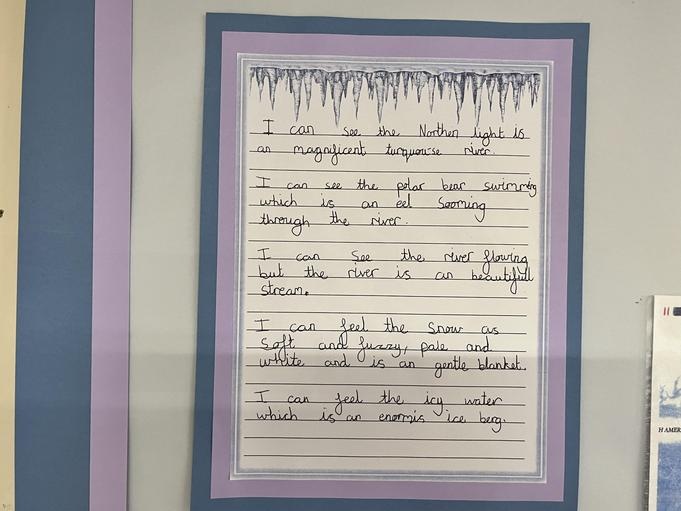 I can see the Northen light is
an magnificent turquouse river.
I can see the polar bear swimming
which is an eel Sooming
through the river.
I can see the river flowing
but the river is an beautifull
stream.
I can feel the snow as
soft and fuzzy, pale and
white and is an gentle blanket.
I can feel the icy water
which is an enormis ice berg.
H AMER